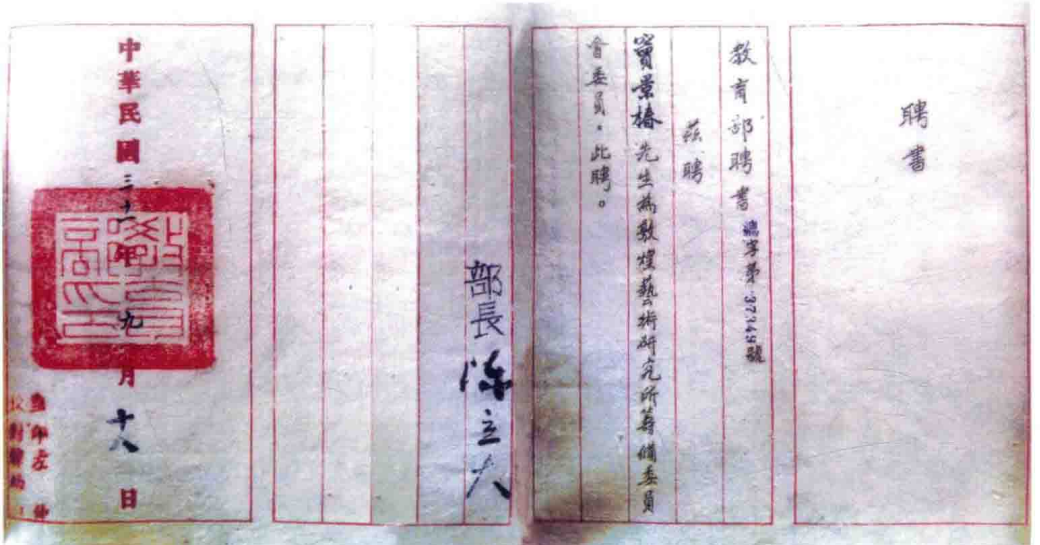 聘書
教育部聘書 聘字第37349號
茲聘
竇景椿先生為敦煌藝術研究所籌備委員
會委員。此聘。
部長 陳立夫
中華民國三十一年九月十八日
監印左
校對